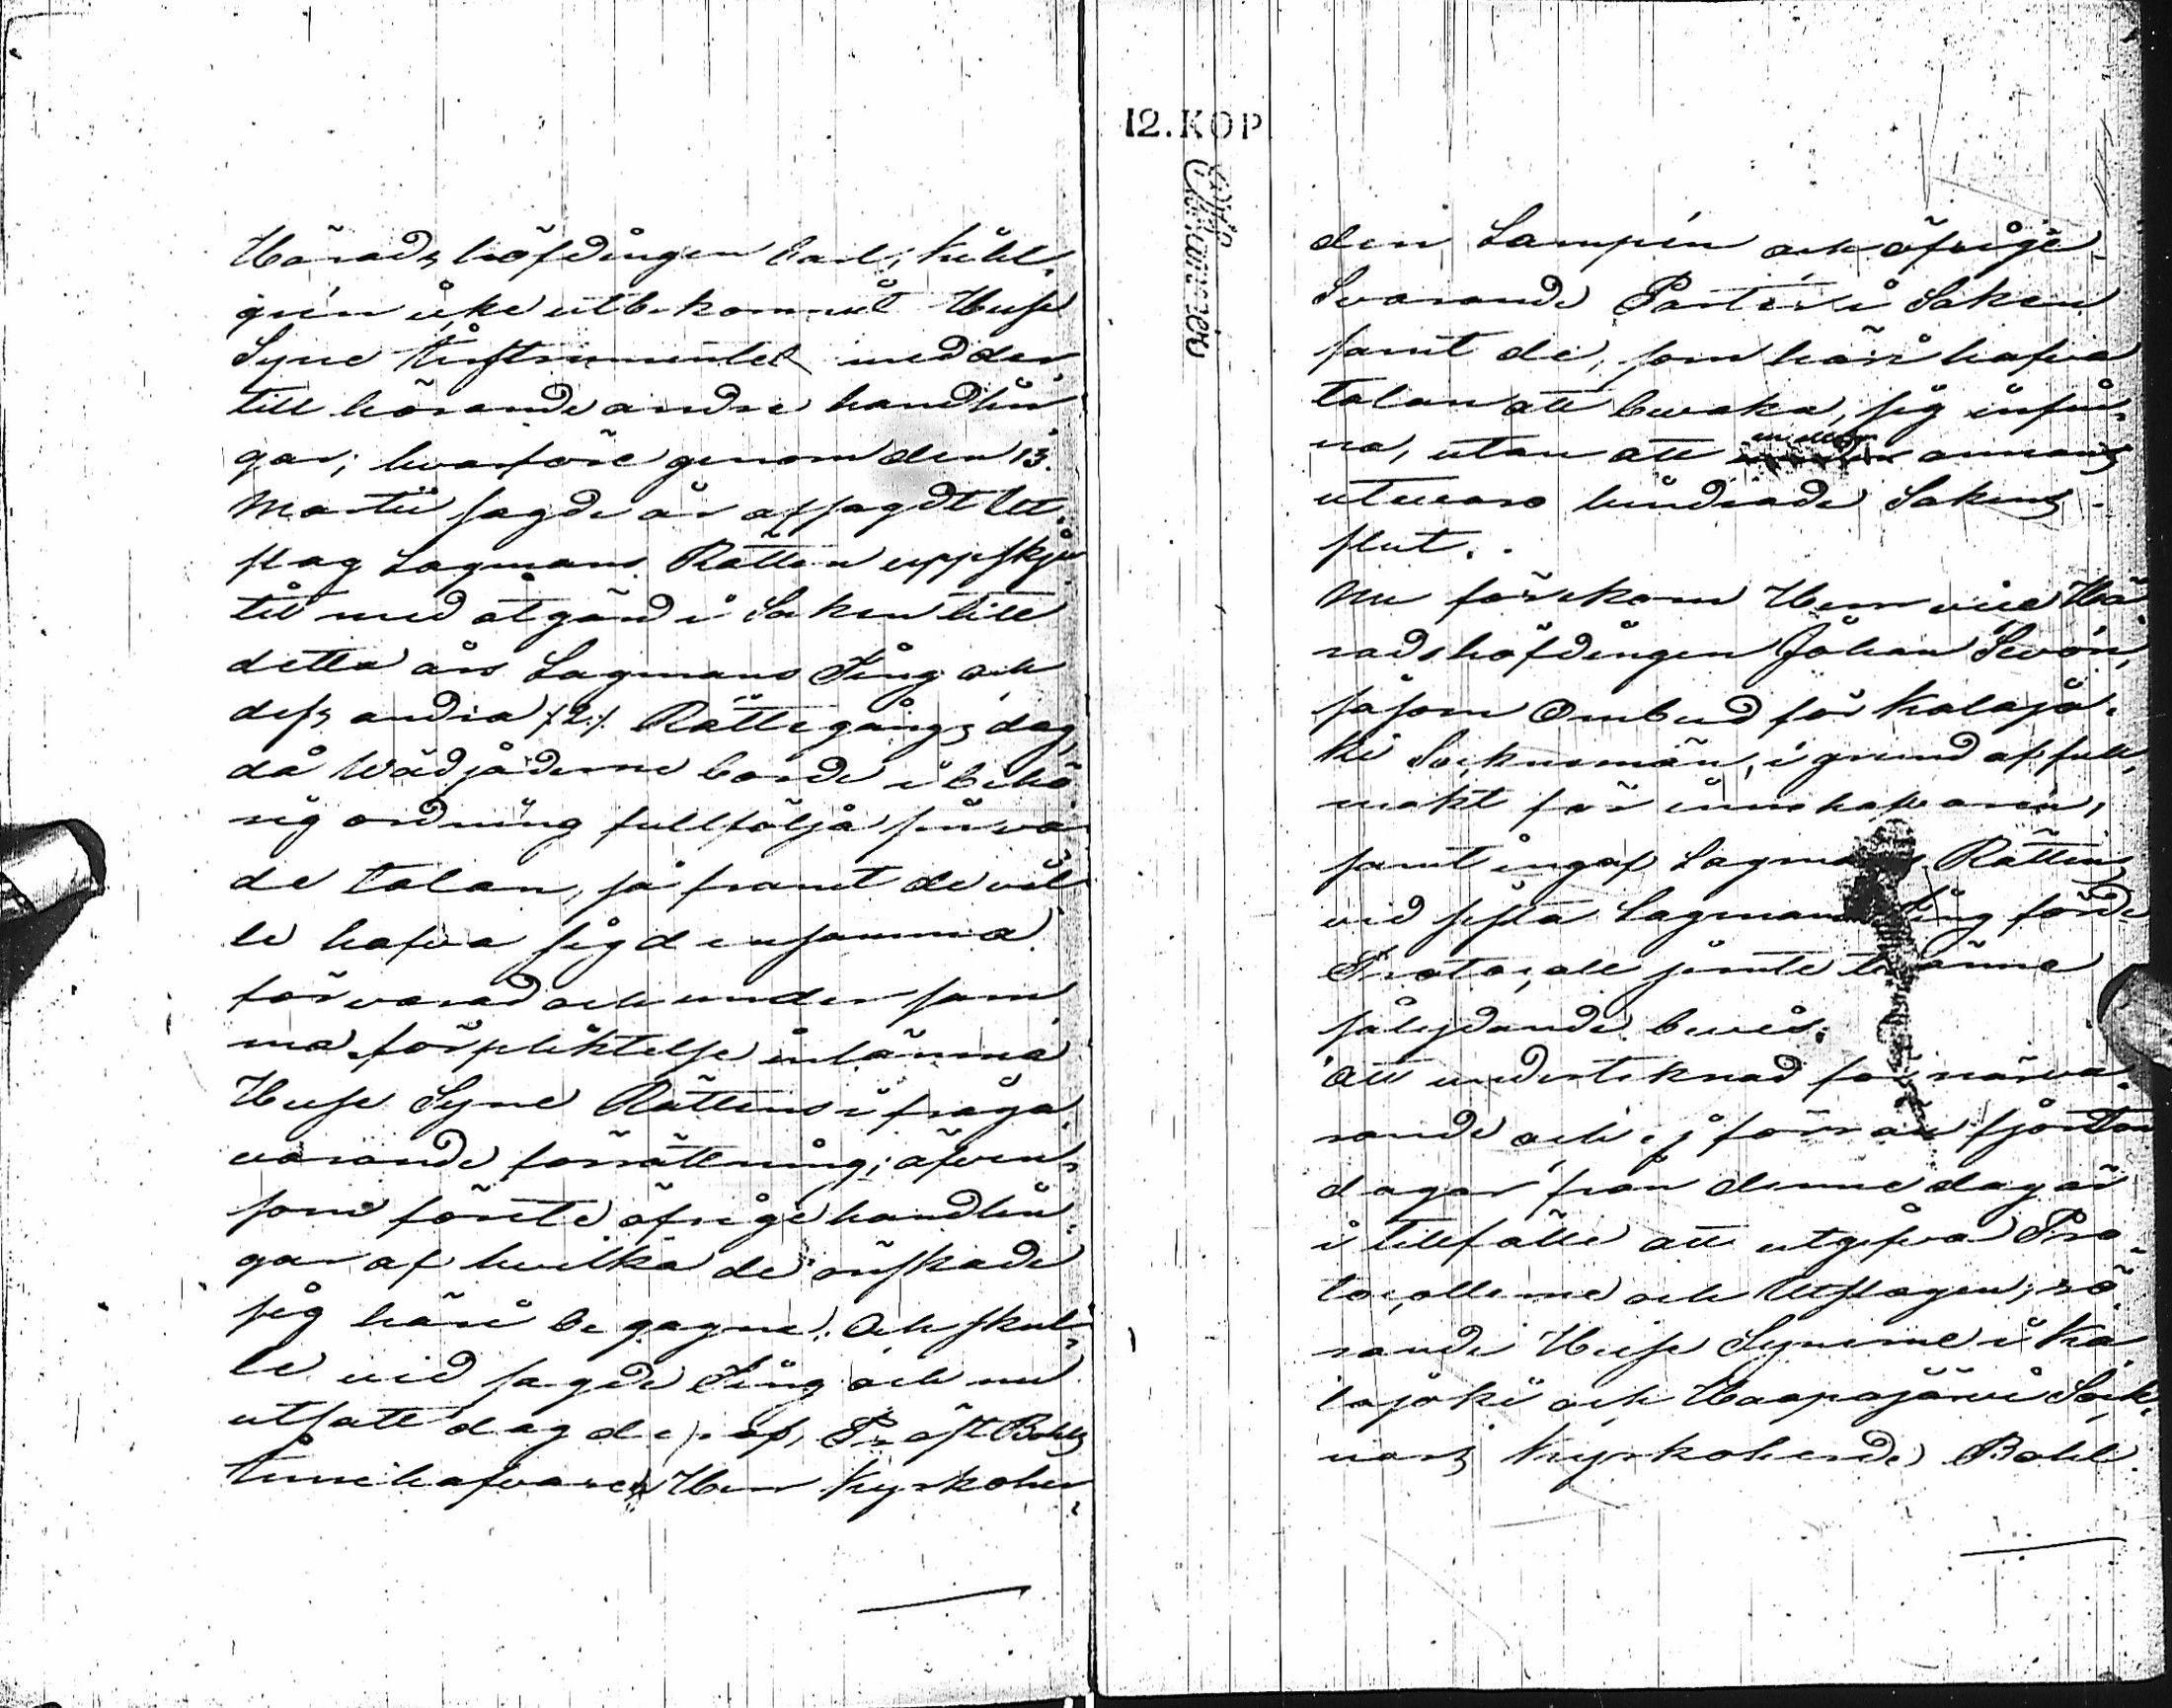 Härads höfdingen Carl Kühl,
grén icke utbekommit Huse
Syne Instrumentet med der,
till hörande andre handlin
gar; hvarföre genom den 13.
Martii sagde år afsagdt Ut,
slag Lagmans Rätten uppskju
tit med åtgärd i Saken till
detta års Lagmans Ting och
dess andra /:2:/ Rättegångs dag,
då Wädjåderne borde i behö,
rig ordning fullfölja sin va
de talan, så framt de vil
le hafva sig densamma
förvarad och under sam,
ma förpliktelse inlämna
Huse Syne Rättens i fråga
varande förrättning; äfven,
som förete öfrige handlin
gar af hvilka de önskade
sig häri begagne. Och skul,
le vid sagde Ting och nu
utsatt dag Prost Bohls
Herr Kyrkoher,
12. KOP
den Lampén och öfrige
Svarande Parter i Saken
samt de, som häri hafva
talan att bevaka, sig infin,
na, utan att en eller annans
utevaro hindrade Sakens
slut.
Nu förekom Herr vice Hä
radshöfdingen Johan Sevón,
såsom Ombud för Kalajo,
ki Socknemän, i grund af full,
makt för innehafvaren,
samt ingaf Lagmans Rättens
vid sista Lagmans Ting förde
Protocoll jemte
sålydande bevis:
Att undertecknad för närva,
rande och ej förr än fjorton
dagar från denne dag är
i tillfälle att utgifva Pro
tocollerne och Utslagen, rö,
rande Huse Synerne i Ka
lajoki och Haapajärvi Sock,
nars Kyrkoherde Bohl